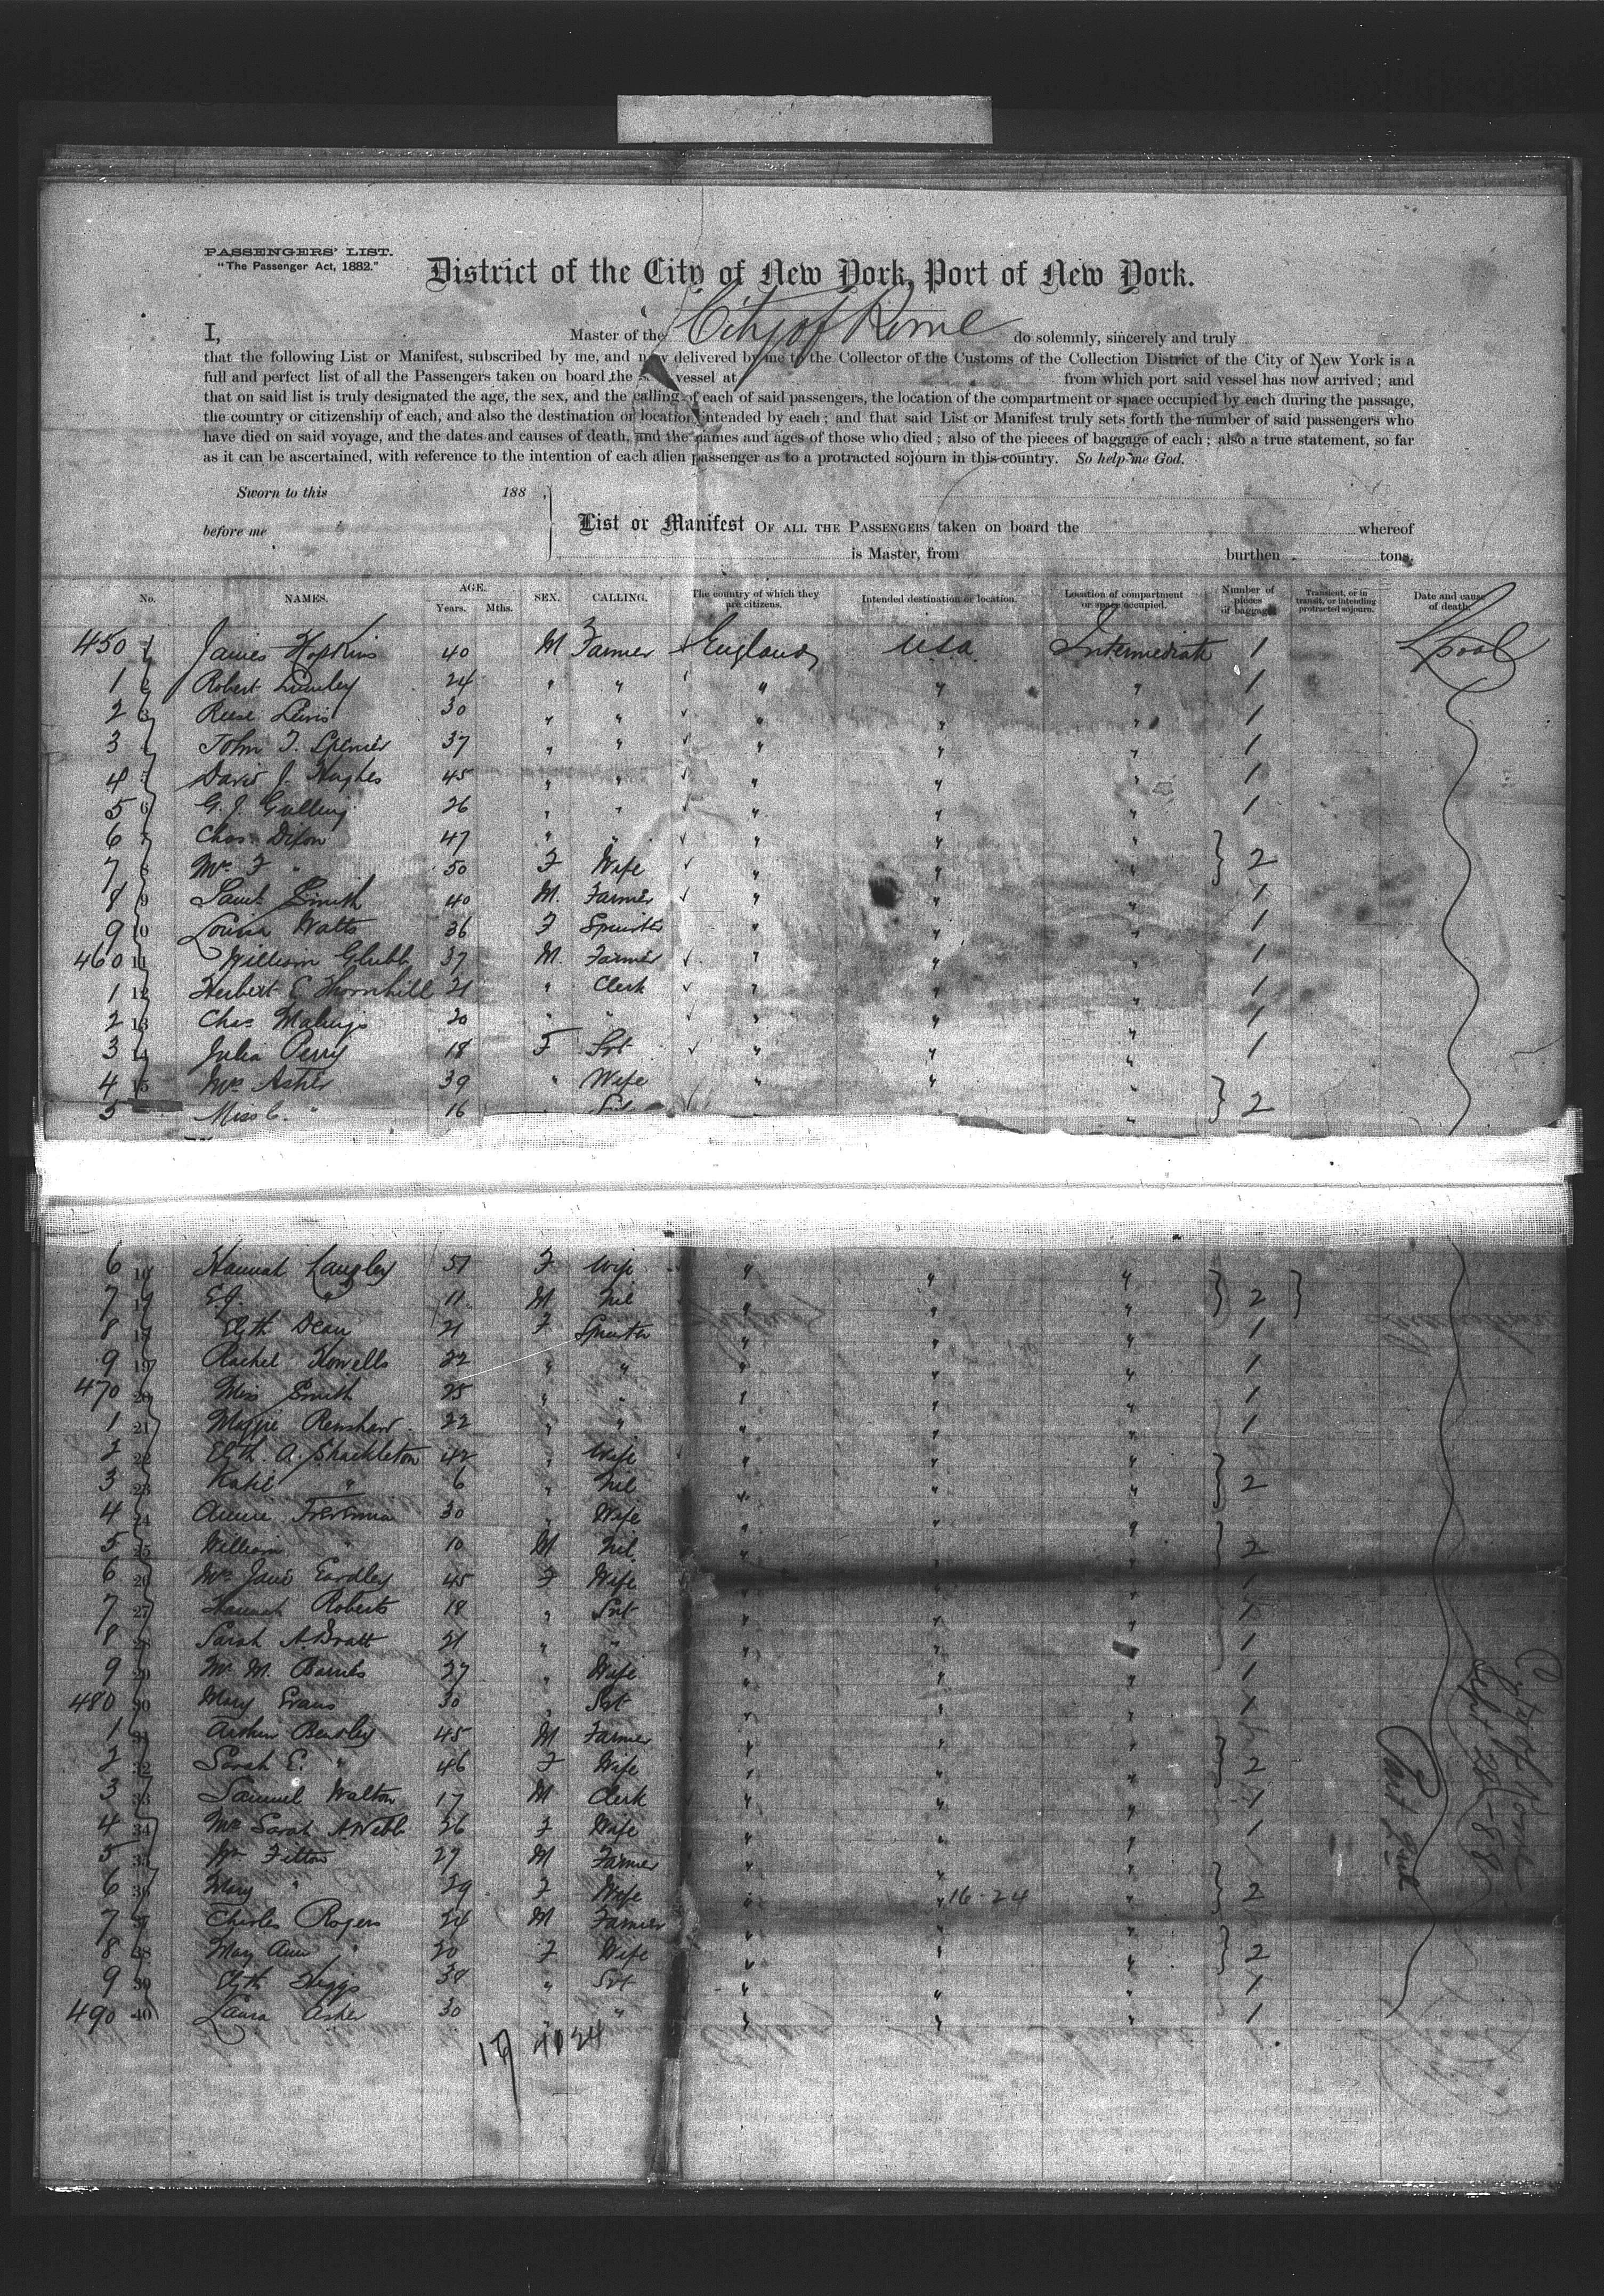 PASSENGERS' LIST.
"The Passenger Act, 1882."
District of the City of New York, Port of New York.
I, Master of the City of Rome do solemnly, sincerely and truly
that the following List or Manifest, subscribed by me, and now delivered by me to the Collector of the Customs of the Collection District of the City of New York is a
full and perfect list of all the Passengers taken on board the vessel at from which port said vessel has now arrived; and
that on said list is truly designated the age, the sex, and the calling of each of said passengers, the location of the compartment or space occupied by each during the passage,
the country or citizenship of each, and also the destination or location intended by each; and that said List or Manifest truly sets forth the number of said passengers who
have died on said voyage, and the dates and causes of death, and the names and ages of those who died; also of the pieces of baggage of each; also a true statement, so far
as it can be ascertained, with reference to the intention of each alien passenger as to a protracted sojourn in this country. So help me God.
Sworn to this 188
before me
List or Manifest OF ALL THE PASSENGERS taken on board the whereof
is Master, from burthen tons.
No. NAMES. AGE. Years. Mths. SEX. CALLING. The country of which they are citizens. Intended destination or location. Location of compartment or space occupied. Number of pieces of baggage Transient, or in transit, or intending protracted sojourn. Date and cause of death.
450 1 James Hopkins 40 M Farmer England USA Intermediate 1 Lpool
1 2 Robert 24 " " " " " 1
2 3 Reese Lewis 30 " " " " " 1
3 4 John T. Spencer 37 " " " " " 1
4 5 David J. Hughes 45 " " " " " 1
5 6 G. J. 26 " " " " " 1
6 7 Chas. Dixon 47 " " " " "
7 8 Mrs F " 50 F Wife " " " 2
8 9 Saml. Smith 40 M. Farmer " " " 1
9 10 Louisa Watts 36 F Spinster " " " 1
460 11 William Glubb 37 M. Farmer " " " 1
1 12 Herbert E Thornhill 21 " Clerk " " " 1
2 13 Chas 20 " " " " " 1
3 14 Julia Perry 18 F Svt " " " 1
4 15 Mrs Asher 39 " Wife " " "
5 Miss C. " 16 " 2
6 16 Hannah Langley 51 F Wife " " "
7 17 E.J. " 11 M Nil " " " 2
8 17 Elzth Dean 21 F Spinster " " " 1
9 19 Rachel Howells 22 " " " " " 1
470 20 Miss Smith 25 " " " " " 1
1 21 Maggie Renshaw 22 " " " " " 1
2 22 Elzth. A. Shackleton 42 " Wife " " "
3 23 Katie " 6 " Nil " " " 2
4 24 Annie 30 " Wife " " "
5 25 William " 10 M Nil " " " 2
6 26 Mrs Jane Eardley 45 F Wife " " " 1
7 27 Hannah Roberts 18 " Svt " " " 1
8 28 Sarah A. Bratt 21 " " " " " 1
9 29 Mrs M. Barnes 27 " Wife " " " 1
480 30 Mary Evans 30 " Svt " " " 1
1 31 Arthur Bentley 45 M Farmer " " "
2 32 Sarah E. " 46 F Wife " " " 2
3 33 Samuel Walton 17 M Clerk " " " 1
4 34 Mrs Sarah A. Webb 26 F Wife " " " 1
5 35 Wm Fitton 27 M Farmer " " "
6 36 Mary " 29 F Wife " " 16-24 " 2
7 37 Charles Rogers 24 M Farmer " " "
8 38 Mary Ann " 20 F Wife " " " 2
9 39 Elzth Higgs 38 " Svt " " " 1
490 40 Laura Asher 30 " " " " " 1
City of Rome
Sept 88